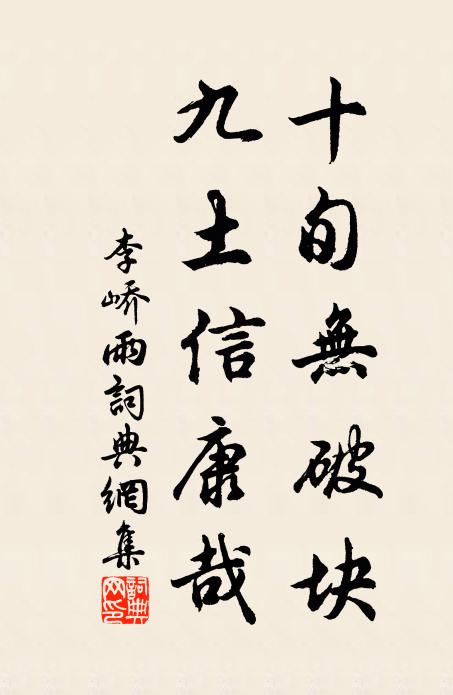 十旬無破块
九土信康哉
李嶠雨詞典網集
詞典网印